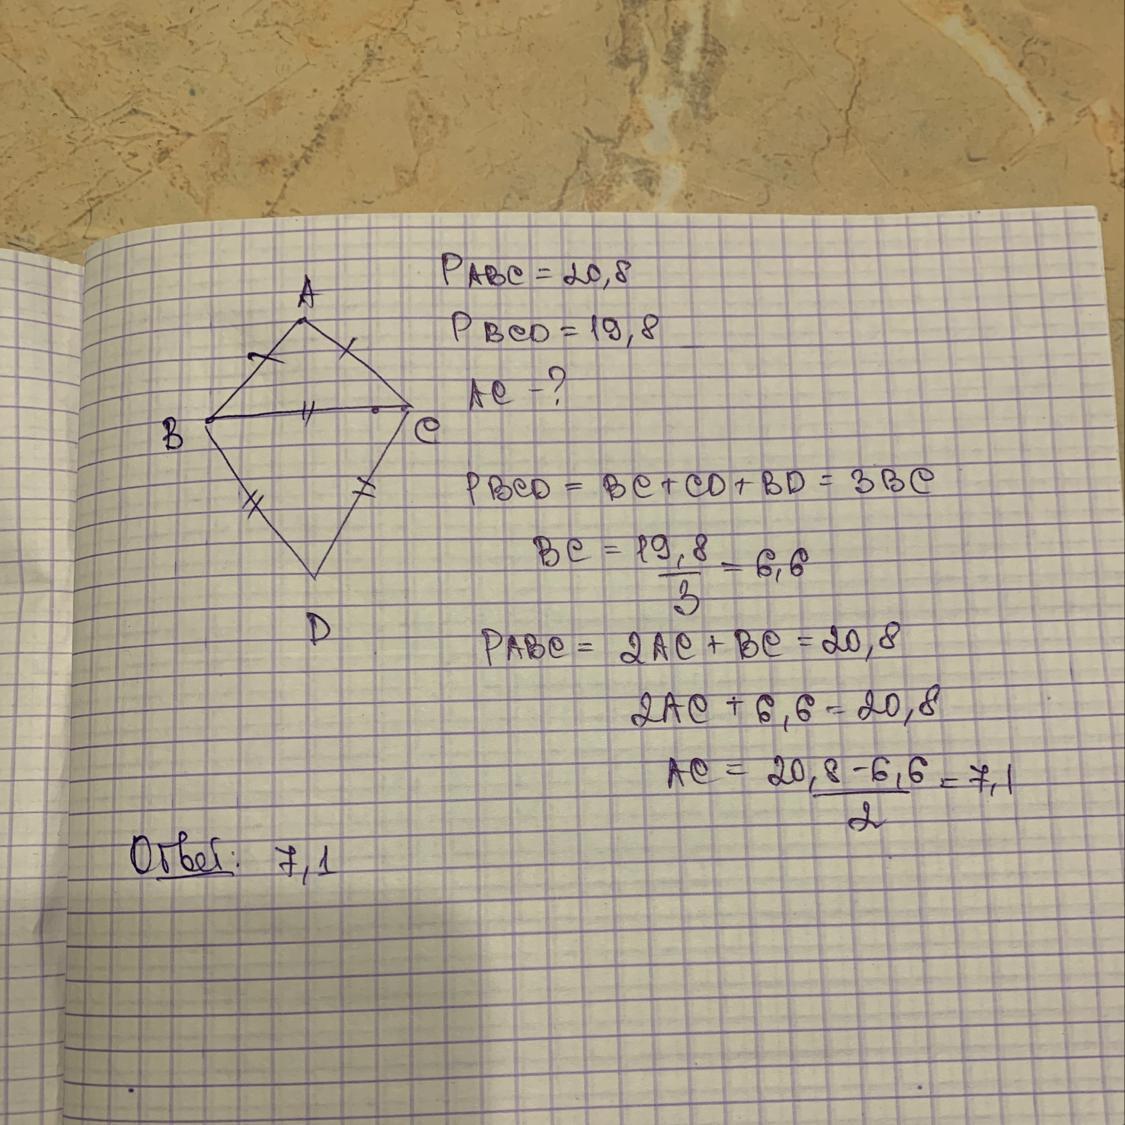 A
B
C
D
PABC = 20,8
PBCD = 19,8
AC - ?
PBCD = BC + CD + BD = 3BC
BC = 19,8/3 = 6,6
PABC = 2AC + BC = 20,8
2AC + 6,6 = 20,8
AC = 20,8 - 6,6/2 = 7,1
Ответ: 7,1